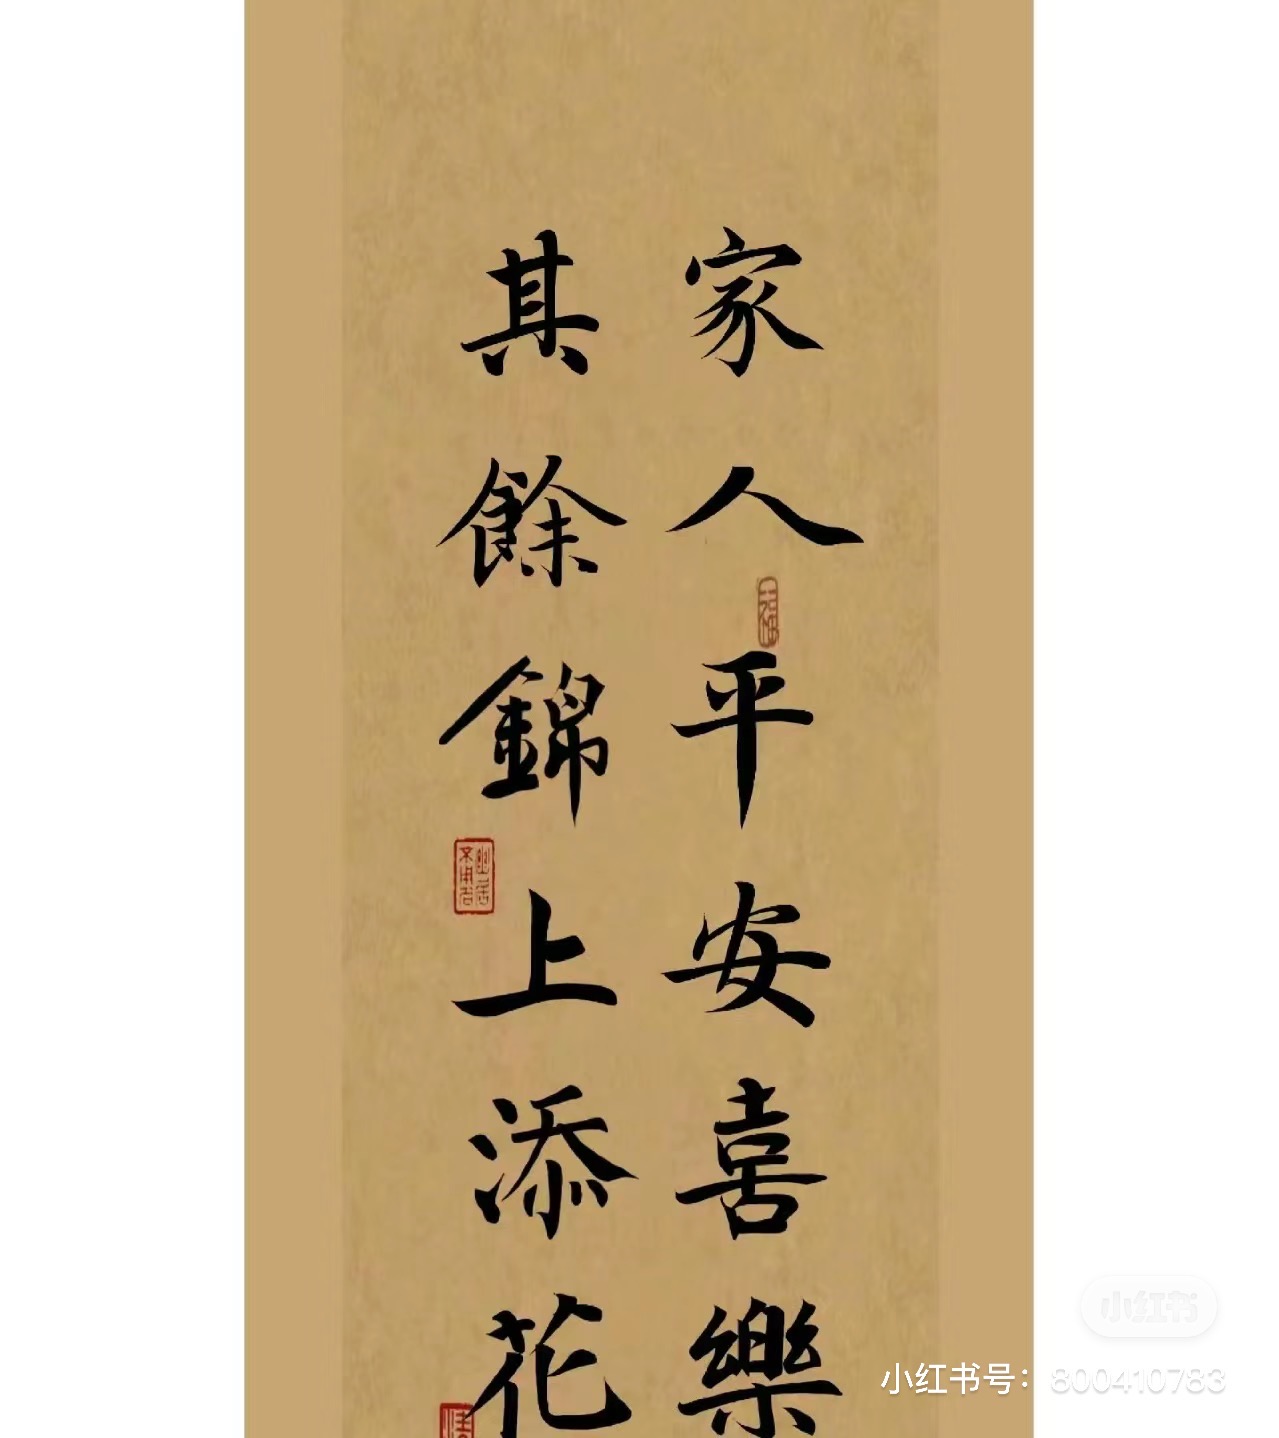 家人平安喜樂
其餘錦上添花
小红书
小红书号：800410783